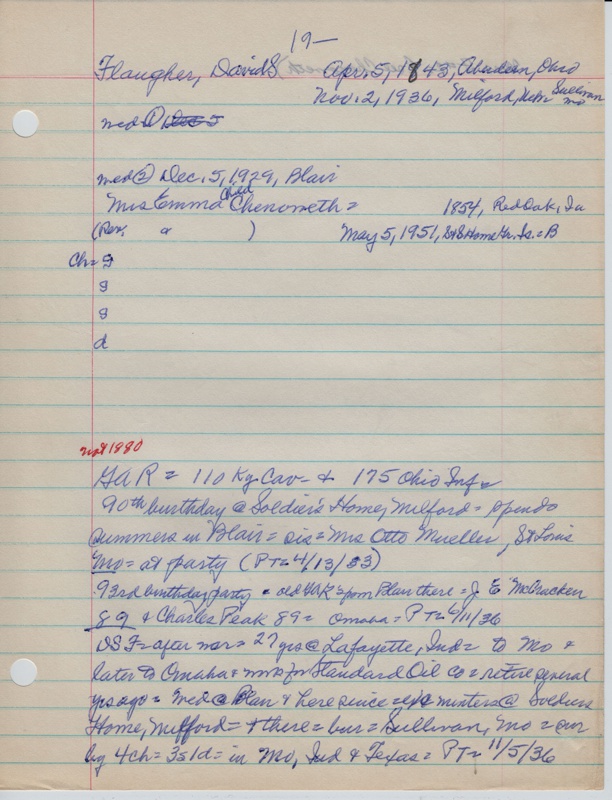 19—
Flaugher, David S Apr. 5, 1843, Aberdeen, Ohio
Nov. 2, 1936, Milford, Nebr Sullivan Mo
med ① Dec 5
med ② Dec. 5, 1929, Blair
Mrs Emma Chenoweth = 1854, Red Oak, Ia
(Rev. a ) May 5, 1951, = B
Ch = s
s
s
d
not 1880
GAR = 110 Ky Cav - & 175 Ohio Inf
90th birthday @ Soldier's Home, Milford = spends
summers in Blair = sis = Mrs Otto Mueller, St Louis
Mo = at party (PT = 4/13/33)
93rd birthday party = old GAR = from Blair there = J. E McCracken
89 & Charles Peak 89 = Omaha = PT = 6/11/36
DSF = after war = 27 yrs @ Lafayette, Ind = to Mo &
later to Omaha = for Standard Oil Co = retire several
yrs ago = med @ Blair & here since = winters @ Soldiers
Home, Milford = & there = bur = Sullivan, Mo = sur
by 4 ch = 3s 1d = in Mo, Ind & Texas = PT = 11/5/36